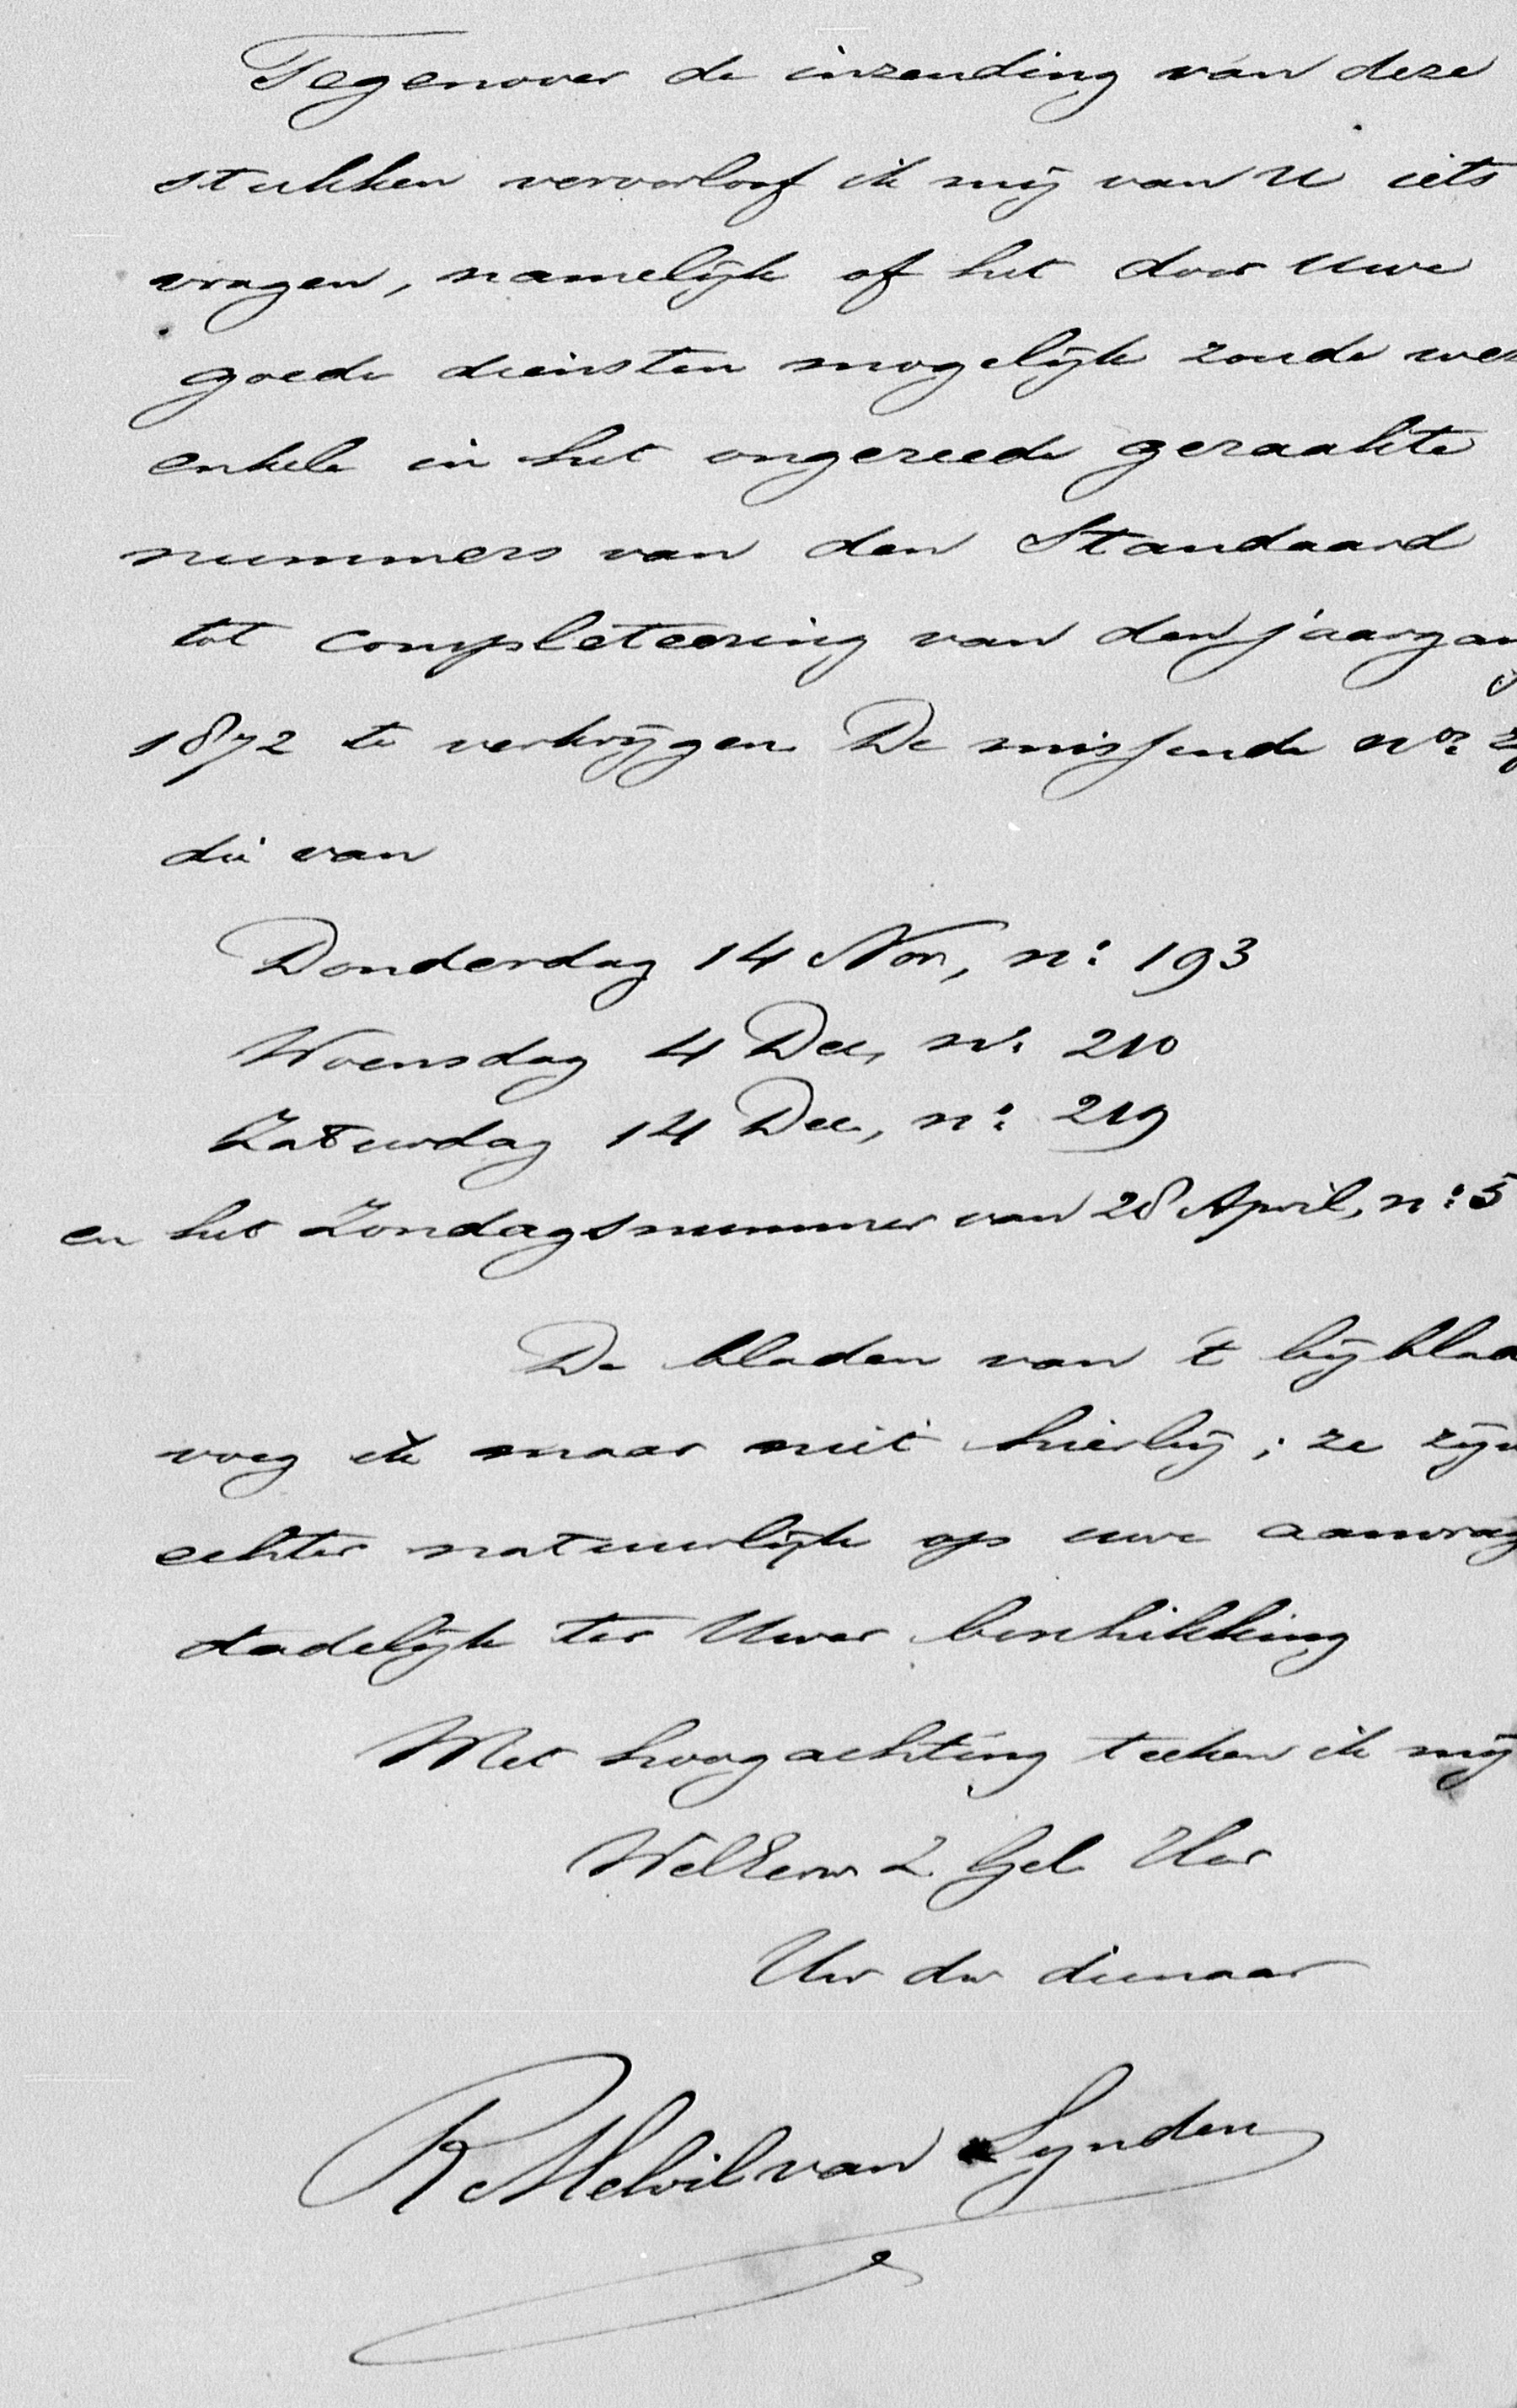 Tegenover de inzending van deze
stukken veroorloof ik mij van U iets
vragen, namelijk of het door Uwe
goede diensten mogelijk zoude wez
enkele in het ongereede geraakte
nummers van den Standaard
tot completeering van den jaargang
1872 te verkrijgen. De missende nos. zij
die van
Donderdag 14 Nov, no: 193
Woensdag 4 Dec, no: 210
Zaturdag 14 Dec, no: 219
en het Zondagsnummer van 28 April, no: 5
De bladen van 't bijblad
voeg ik maar niet hierbij; ze zijn
echter natuurlijk op uwe aanvrag
dadelijk ter Uwer beschikking
Met hoogachting teeken ik mij
WelEerw Z. Gel. Heer
Uw dw dienaar
R Melvil van Lynden